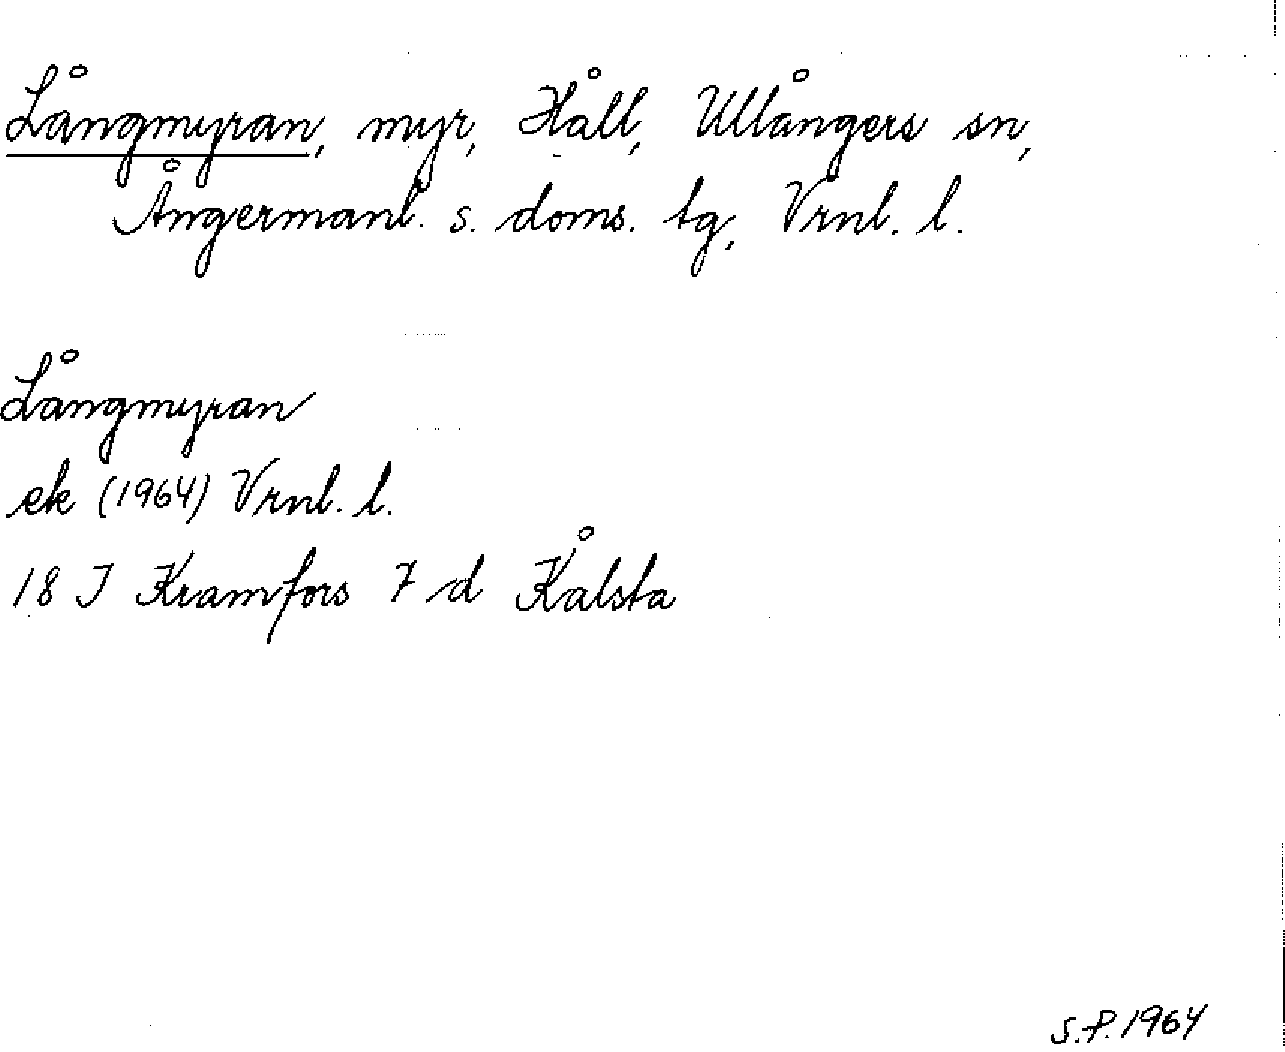 Långmyran, myr, Håll, Ullångers sn,
Ångermanl. s. doms. tg, Vrnl. l.
Långmyran
ek (1964) Vrnl. l.
18 J Kramfors 7 d Kålsta
S.P. 1964